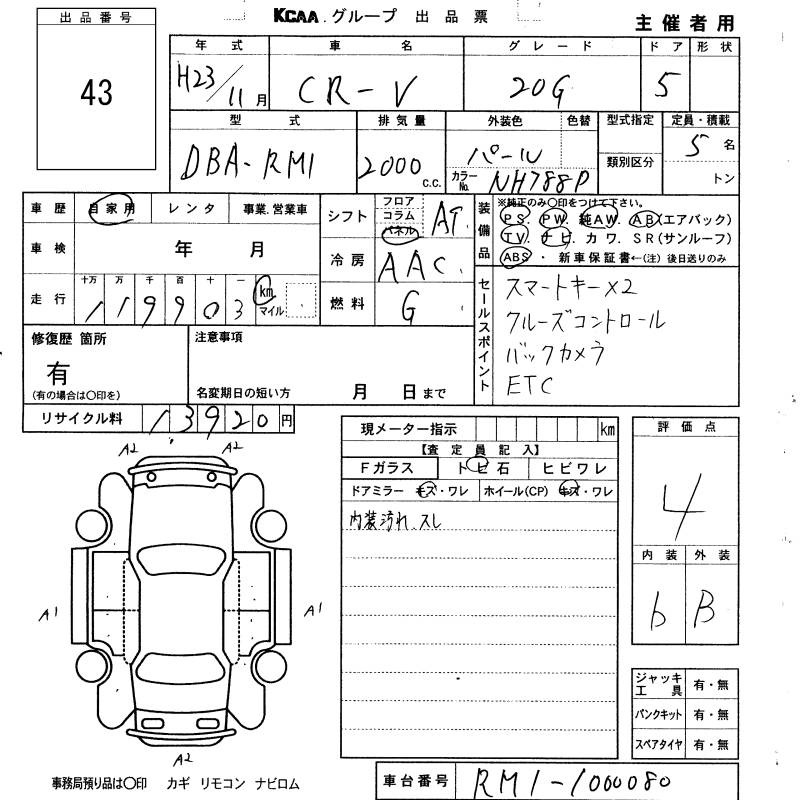 KCAA.グループ 出品票
主催者用
出品番号
43
年式 車名 グレード ドア 形状
H23/11月 CR-V 20G 5
型式 排気量 外装色 色替 型式指定 定員・積載
DBA-RM1 2000 c.c. パール 類別区分 5名
カラーNo. NH788P トン
車歴 自家用 レンタ 事業.営業車
車検 年 月
十万 万 千 百 十 一
走行 119903 km マイル
シフト フロア コラム パネル AT
冷房 AAC
燃料 G
装備品 ※純正のみ○印をつけて下さい。
PS. PW. 純AW. AB(エアバック)
TV. ナビ カワ. SR(サンルーフ)
ABS ・ 新車保証書←(注)後日送りのみ
セールスポイント
スマートキー×2
クルーズコントロール
バックカメラ
ETC
修復歴 箇所
有
(有の場合は○印を)
注意事項
名変期日の短い方 月 日まで
リサイクル料 13920円
現メーター指示 km
【査定員記入】
Fガラス トビ石 ヒビワレ
ドアミラー キズ・ワレ ホイール(CP) キズ・ワレ
内装汚れ、スレ
評価点
4
内装 外装
b B
A2 A2
A1 A1
A2
ジャッキ工具 有・無
パンクキット 有・無
スペアタイヤ 有・無
事務局預り品は○印 カギ リモコン ナビロム
車台番号 RM1-1000080